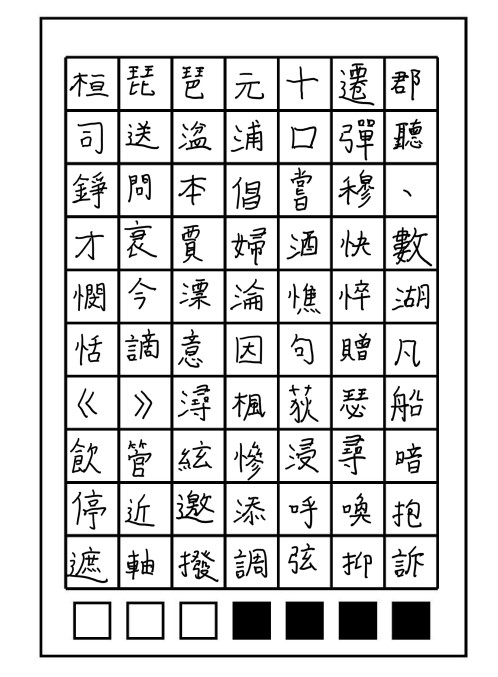 桓琵琶元十遷郡
司送湓浦口彈聽
錚問本倡嘗穆、
才衰賈婦酒快數
憫今漂淪憔悴湖
恬謫意因句贈凡
《》潯楓荻瑟船
飲管絃慘浸尋暗
停近邀添呼喚抱
遮軸撥調弦抑訴